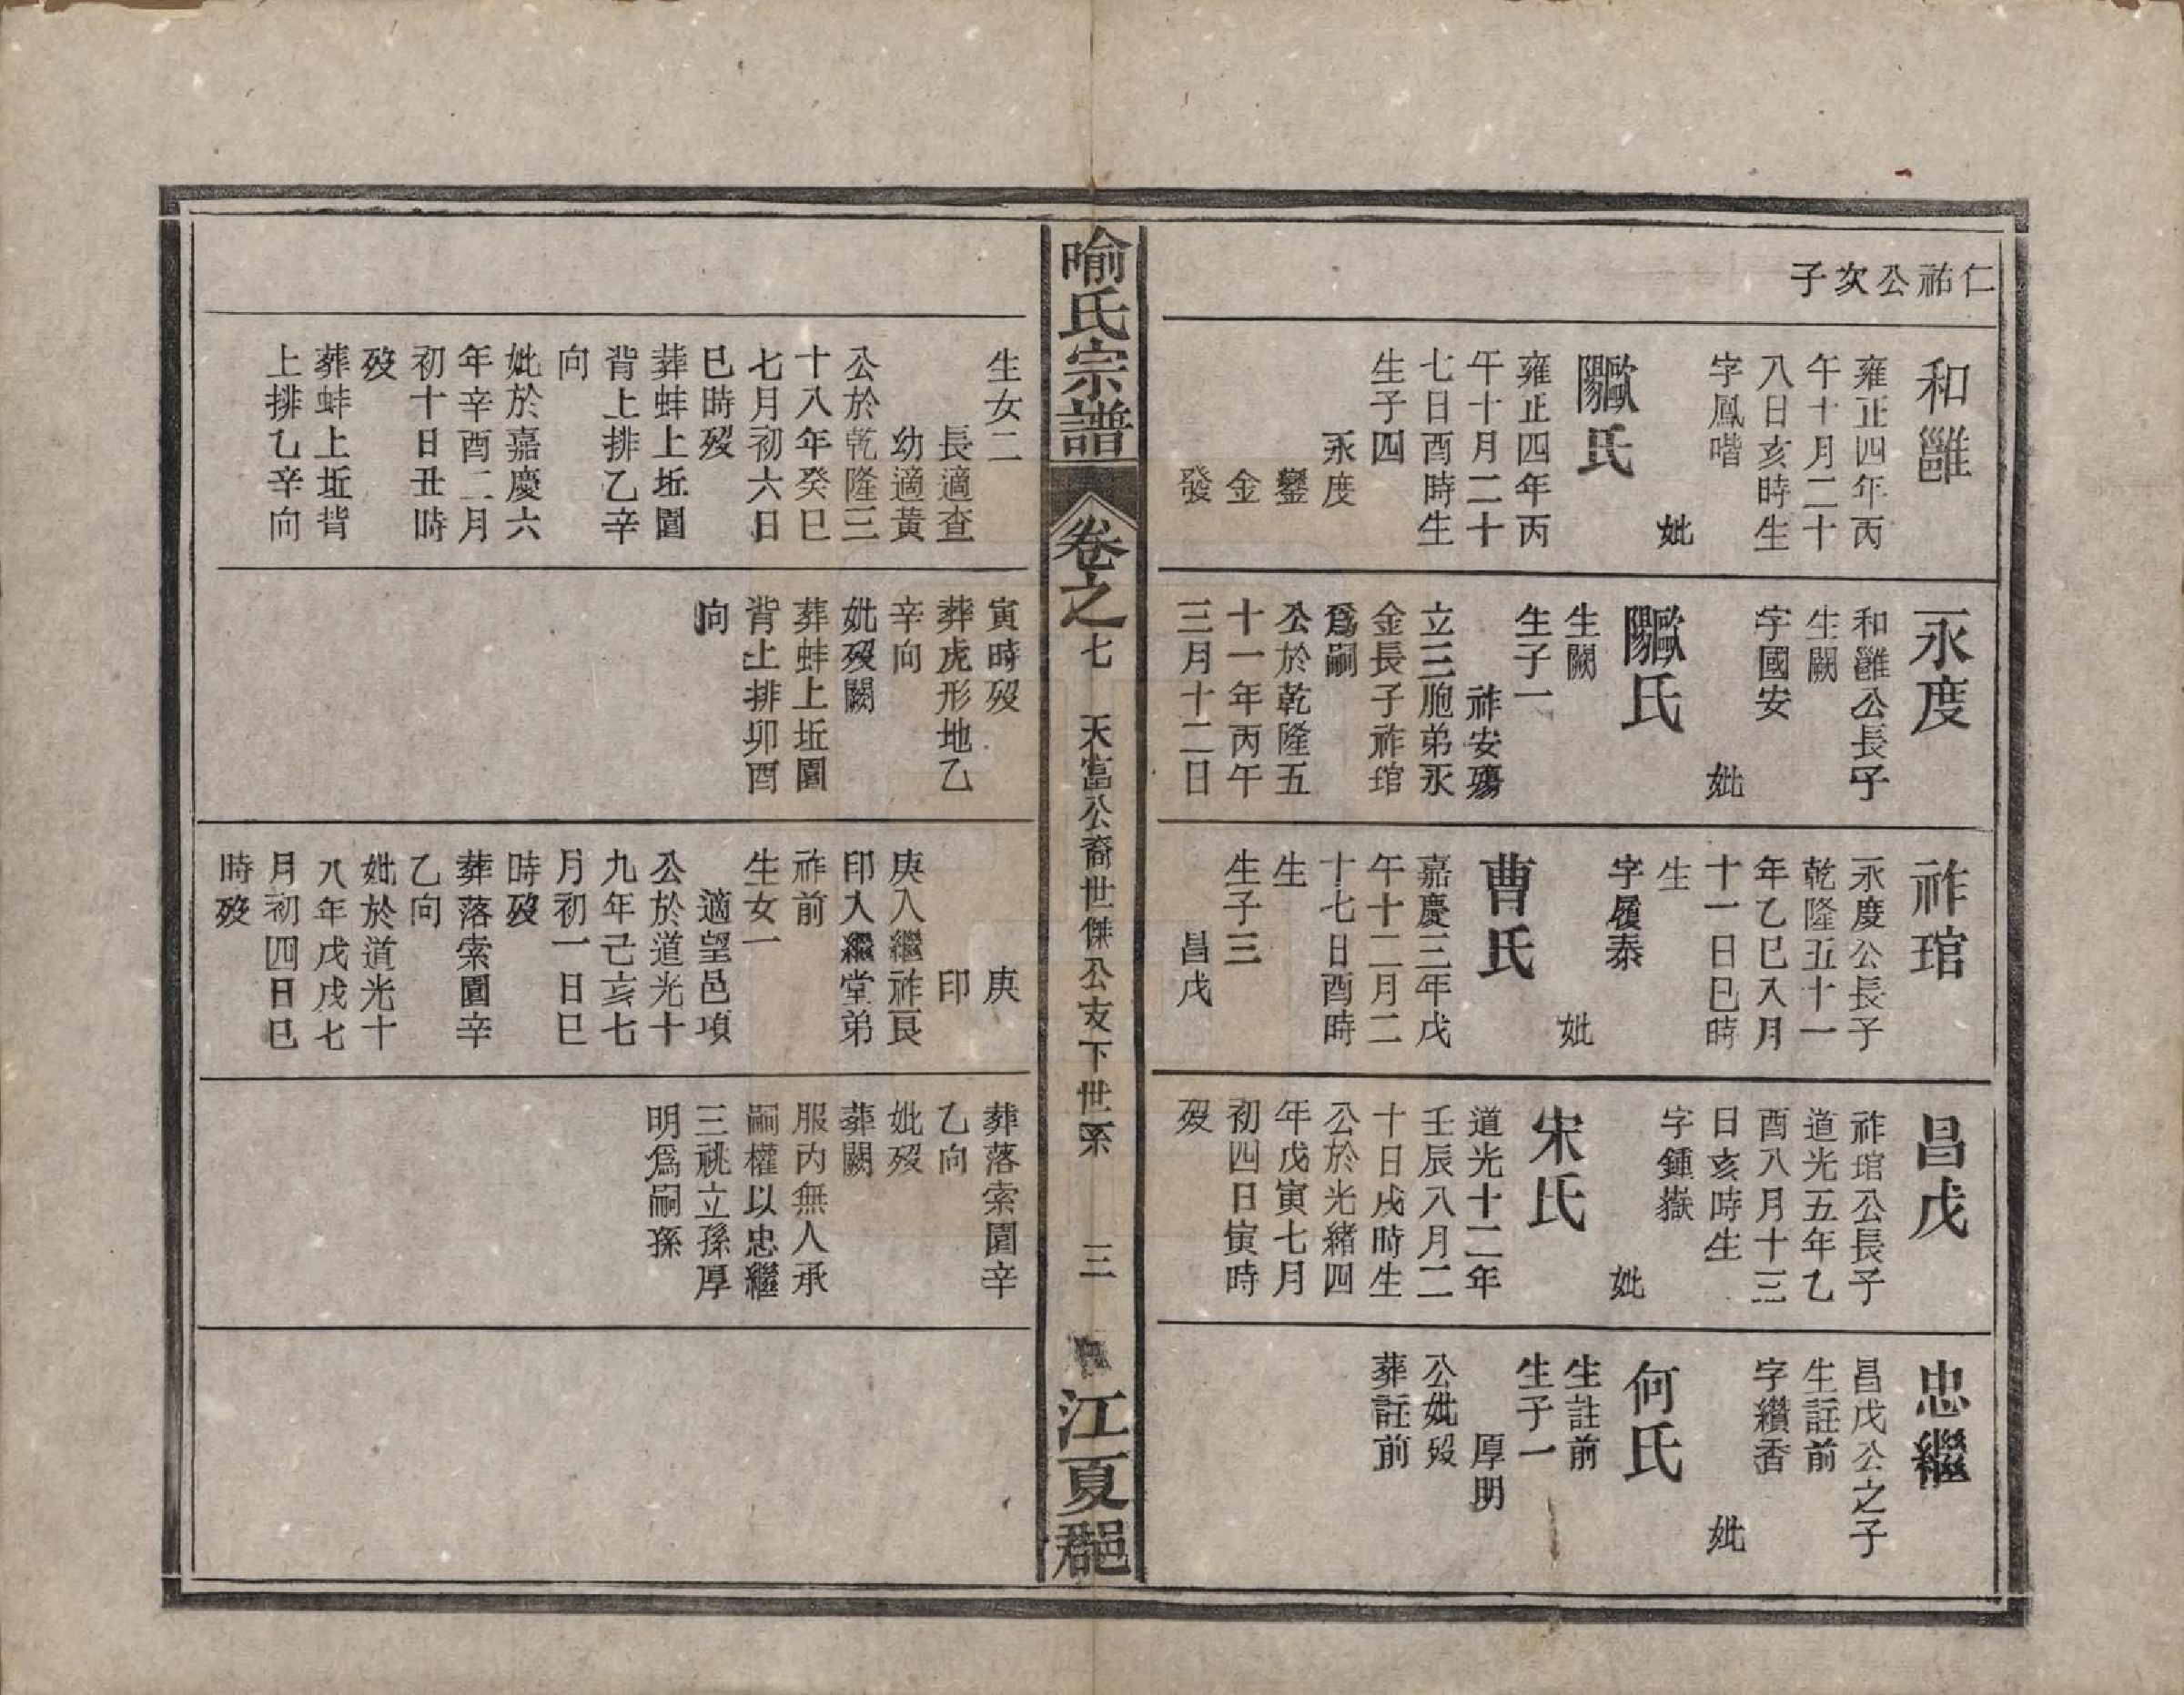 仁祐公次子
和雝
雍正四年丙
午十月二十
八日亥時生
字鳳喈
妣
歐陽氏
雍正四年丙
午十月二十
七日酉時生
生子四
永度
鑾
金
發
永度
和雝公長子
生闕
字國安
妣
歐陽氏
生闕
生子一
祚安殤
立三胞弟永
金長子祚琯
爲嗣
公於乾隆五
十一年丙午
三月十二日
祚琯
永度公長子
乾隆五十一
年乙巳八月
十一日巳時
生
字履泰
妣
曹氏
嘉慶三年戊
午十二月二
十七日酉時
生
生子三
昌戊
昌戊
祚琯公長子
道光五年乙
酉八月十三
日亥時生
字鍾嶽
妣
宋氏
道光十二年
壬辰八月二
十日戌時生
公於光緒四
年戊寅七月
初四日寅時
歿
忠繼
昌戊公之子
生註前
字纘香
妣
何氏
生註前
生子一
厚明
公妣歿
葬註前
喻氏宗譜
卷之七
天富公裔世傑公支下世系
三
江夏郡
生女二
長適查
幼適黃
公於乾隆三
十八年癸巳
七月初六日
巳時歿
葬蚌上坵園
背上排乙辛
向
妣於嘉慶六
年辛酉二月
初十日丑時
歿
葬蚌上坵背
上排乙辛向
寅時歿
葬虎形地乙
辛向
妣歿闕
葬蚌上坵園
背上排卯酉
向
庚
印
庚入繼祚艮
印入繼堂弟
祚前
生女一
適望邑項
公於道光十
九年己亥七
月初一日巳
時歿
葬落索園辛
乙向
妣於道光十
八年戊戌七
月初四日巳
時歿
葬落索園辛
乙向
妣歿
葬闕
服內無人承
嗣權以忠繼
三祧立孫厚
明爲嗣孫